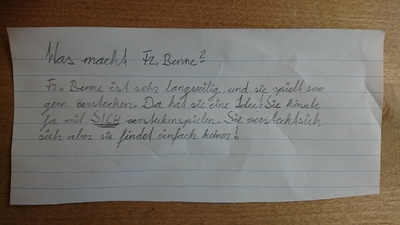 Was macht Fr. Benne?
Fr. Benne ist sehr langweilig und sie spielt soo
gern verstecken. Da hat sie eine Idee! Sie könnte
ja mit SICH versteckenspielen. Sie versteckt sich
sich aber sie findet einfach keiner!